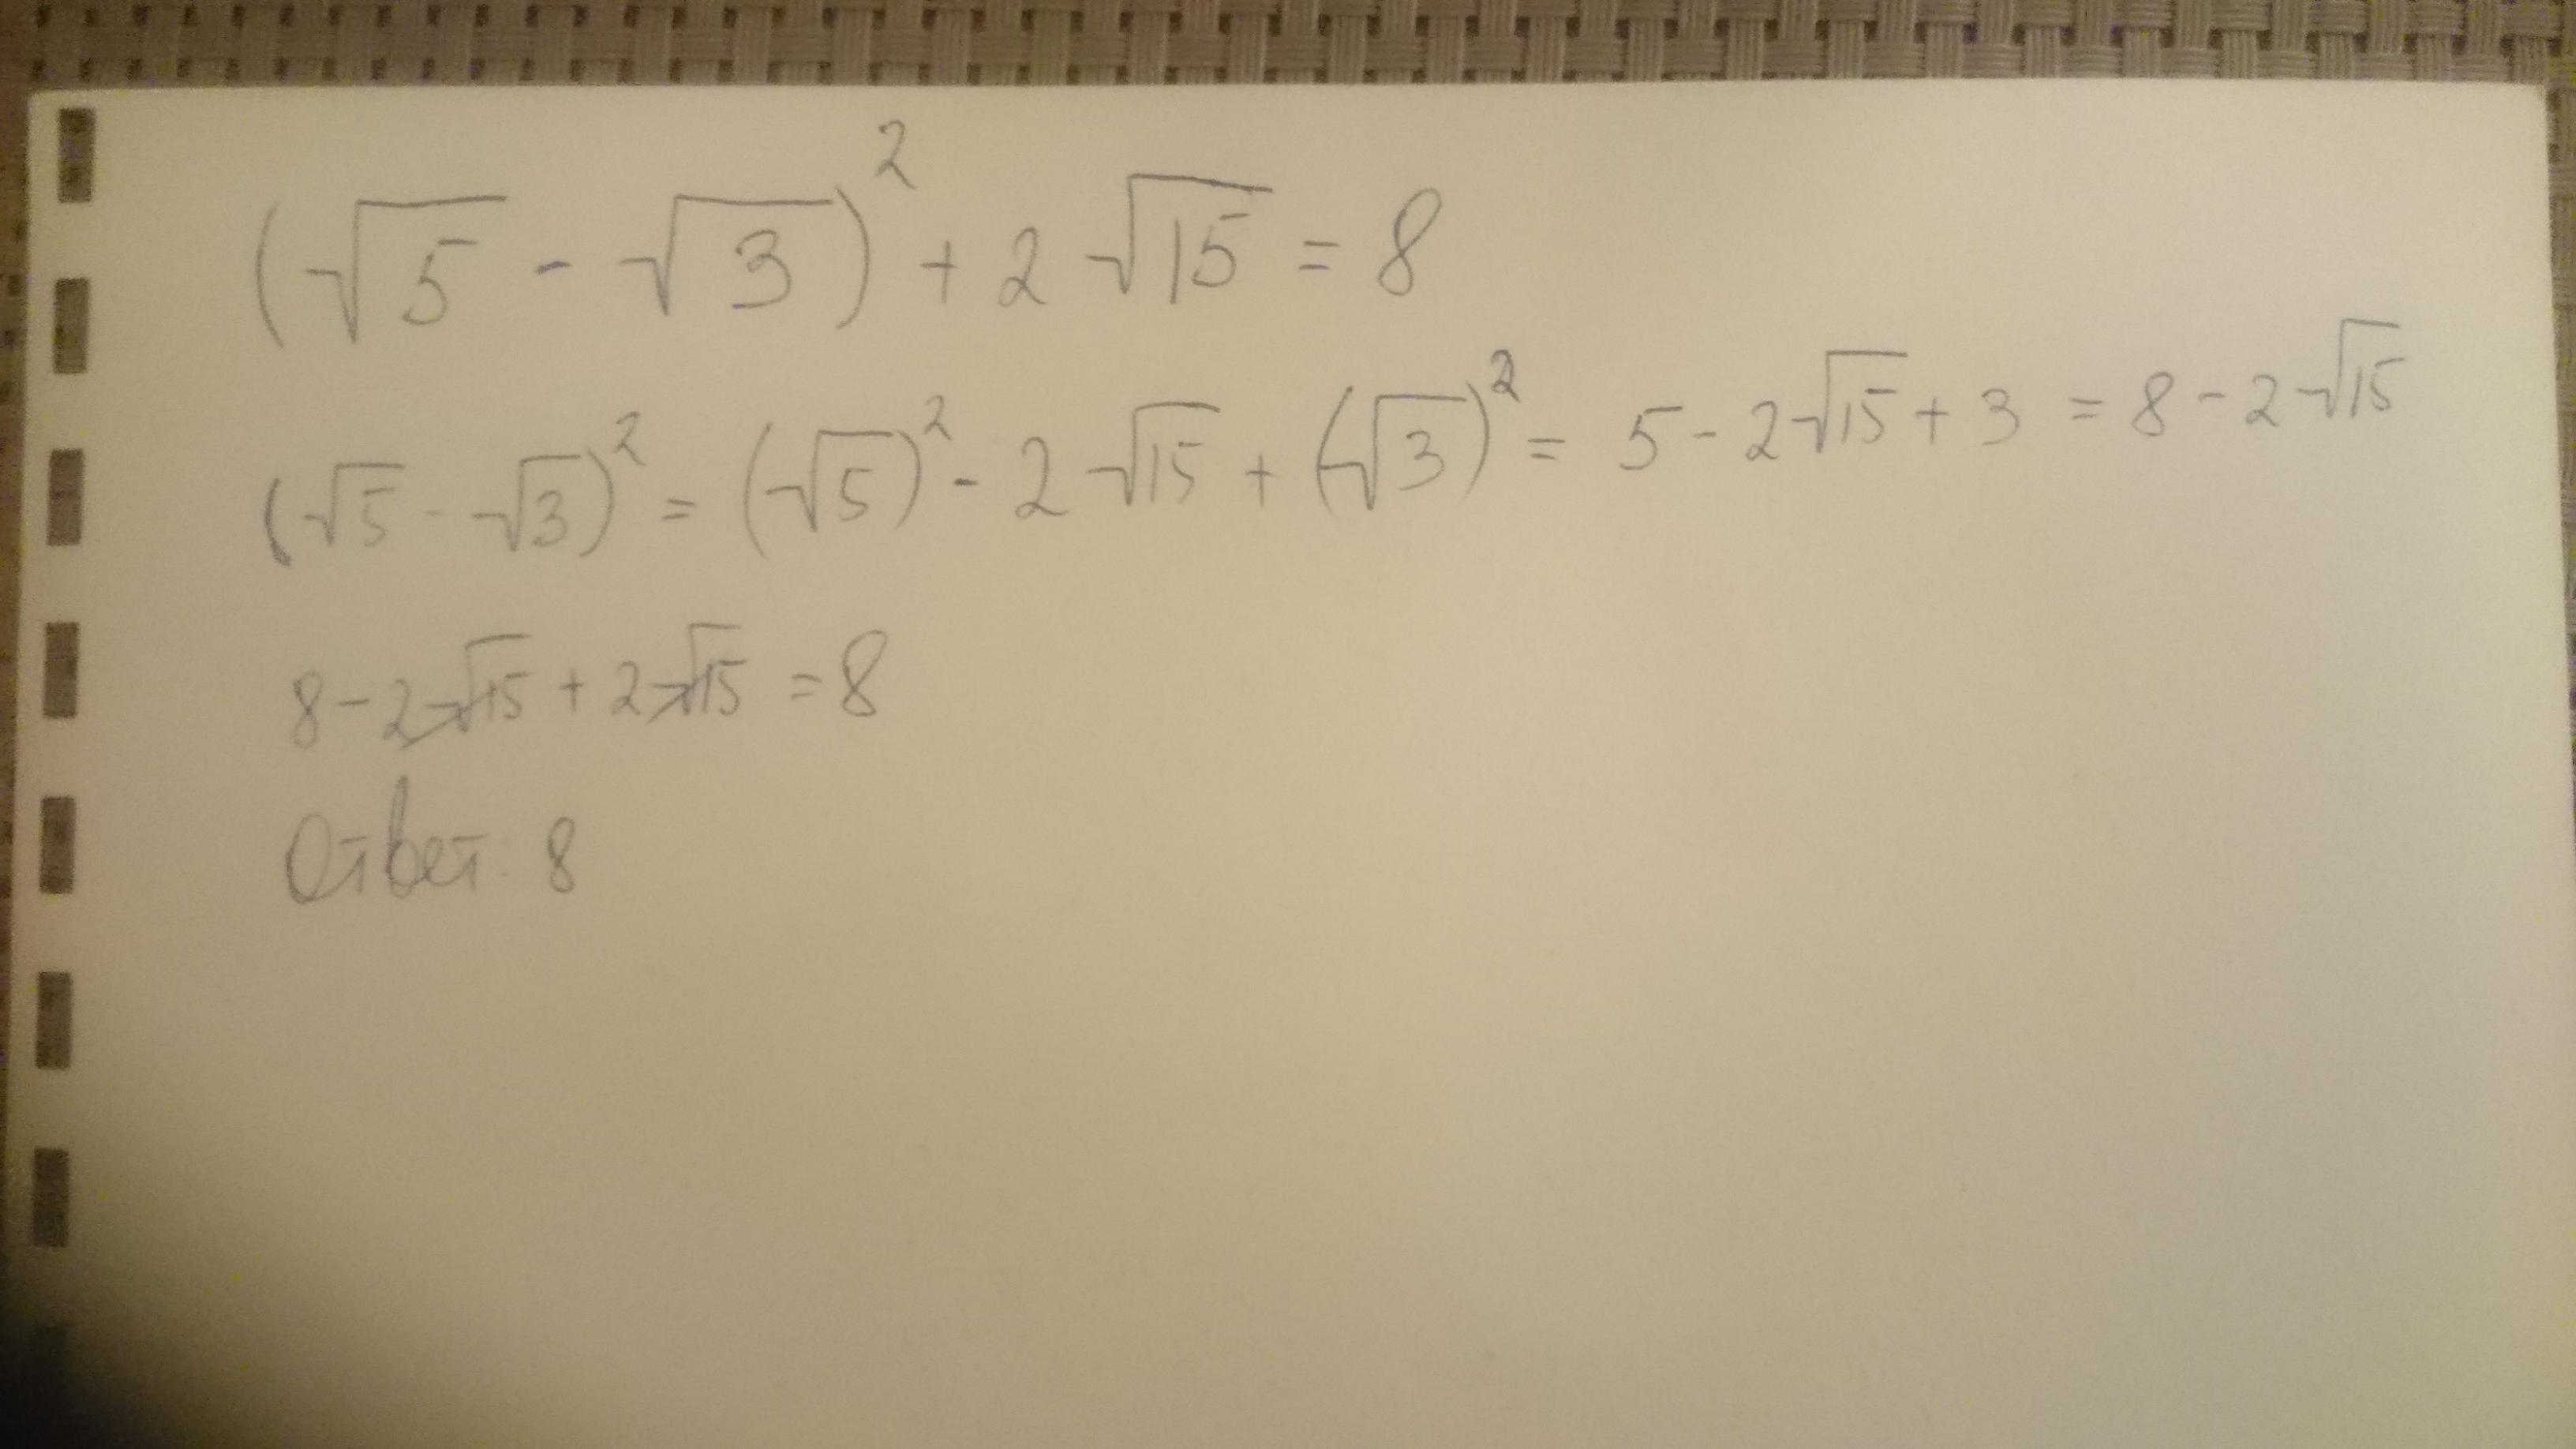 (√5 - √3)² + 2√15 = 8
(√5 - √3)² = (√5)² - 2√15 + (√3)² = 5 - 2√15 + 3 = 8 - 2√15
8 - 2√15 + 2√15 = 8
Ответ: 8